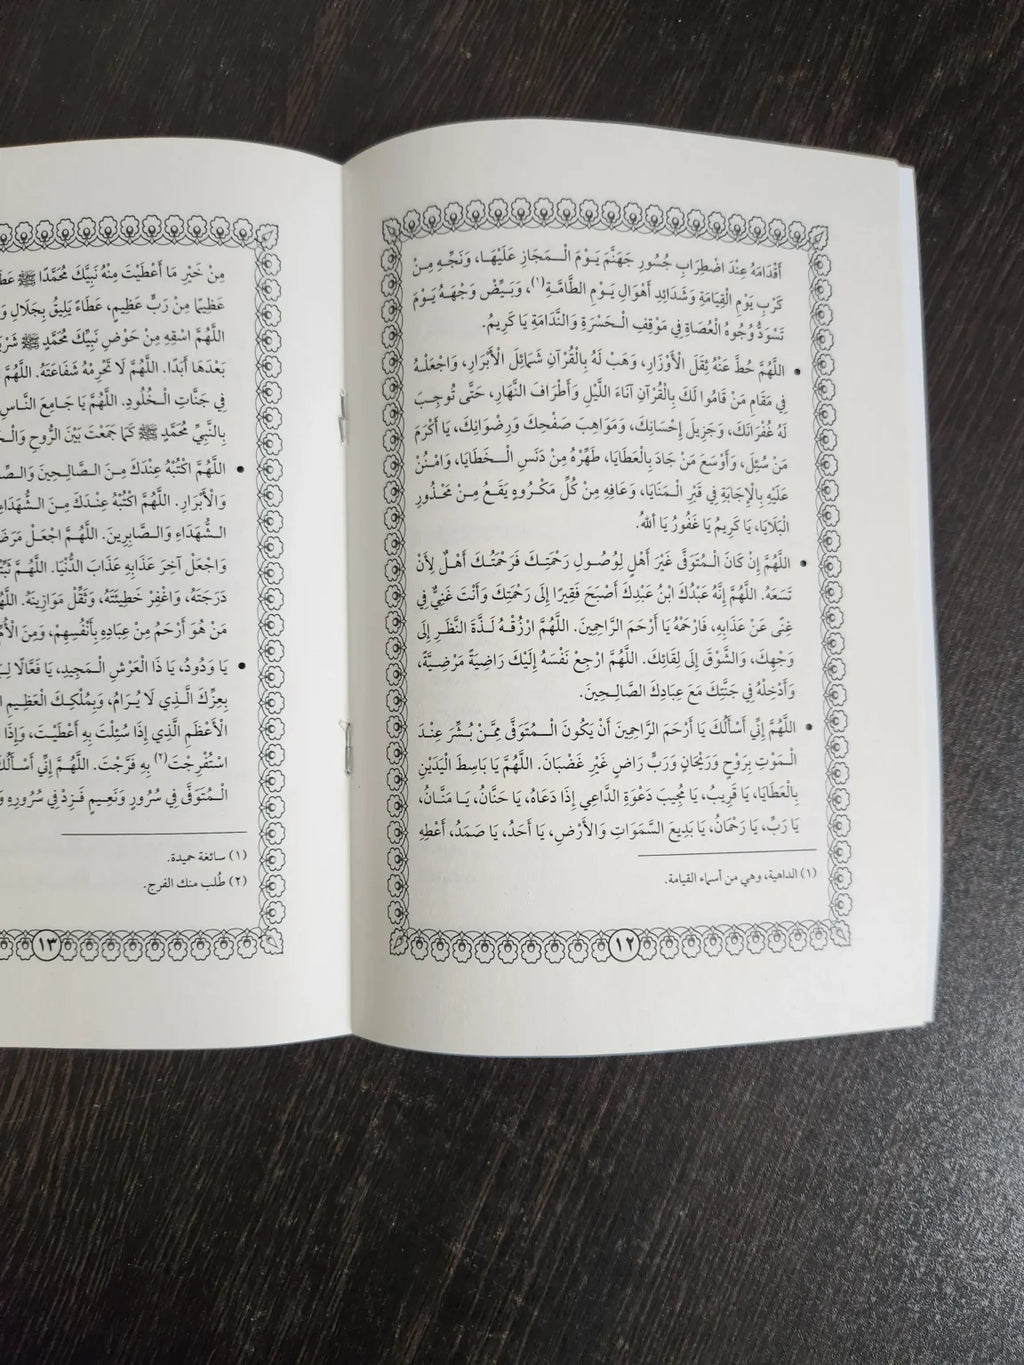 أَقْدَامَهُ عِنْدَ اضْطِرَابِ جُسُورِ جَهَنَّمَ يَوْمَ الْـمَجَازِ عَلَيْهَا، وَنَجِّهِ مِنْ
كَرْبِ يَوْمِ الْقِيَامَةِ وَشَدَائِدِ أَهْوَالِ يَـوْمِ الطَّامَّـةِ(١)، وَبَـيِّضْ وَجْهَـهُ يَـوْمَ
تَسْوَدُّ وُجُوهُ الْعُصَاةِ فِي مَوْقِفِ الْـحَسْرَةِ وَالنَّدَامَةِ يَا كَرِيمُ.
• اللَّهُمَّ حُطَّ عَنْهُ ثِقَلَ الْأَوْزَارِ، وَهَبْ لَهُ بِالْقُرْآنِ شَمَائِلَ الْأَبْرَارِ، وَاجْعَلْـهُ
فِي مَقَامِ مَنْ قَامُوا لَكَ بِالْقُرْآنِ آنَاءَ اللَّيْلِ وَأَطْرَافَ النَّهَارِ، حَتَّى تُوجِـبَ
لَهُ غُفْرَانَكَ، وَجَزِيلَ إِحْسَانِكَ، وَمَوَاهِبَ صَفْحِكَ وَرِضْوَانِكَ، يَا أَكْرَمَ
مَنْ سُئِلَ، وَأَوْسَعَ مَنْ جَادَ بِالْعَطَايَا، طَهِّرْهُ مِنْ دَنَسِ الْـخَطَايَا، وَامْنُنْ
عَلَيْهِ بِالْإِجَابَةِ فِي قَبْرِ الْـمَنَايَا، وَعَافِهِ مِنْ كُلِّ مَكْـرُوهٍ يَقَـعُ مِـنْ مَحْذُورِ
الْبَلَايَا، يَا كَرِيمُ يَا غَفُورُ يَا اللهُ.
• اللَّهُمَّ إِنْ كَانَ الْـمُتَوَفَّى غَيْرَ أَهْلٍ لِوُصُـولِ رَحْمَتِـكَ فَرَحْمَتُـكَ أَهْـلٌ لِأَنْ
تَسَعَهُ. اللَّهُمَّ إِنَّهُ عَبْدُكَ ابْنُ عَبْدِكَ أَصْبَحَ فَقِيرًا إِلَى رَحْمَتِكَ وَأَنْتَ غَنِيٌّ فِي
غِنًى عَنْ عَذَابِهِ، فَارْحَمْهُ يَا أَرْحَمَ الرَّاحِمِينَ. اللَّهُمَّ ارْزُقْـهُ لَـذَّةَ النَّظَـرِ إِلَى
وَجْهِكَ، وَالشَّوْقَ إِلَى لِقَائِكَ. اللَّهُمَّ ارْجِعْ نَفْسَهُ إِلَيْكَ رَاضِيَةً مَرْضِيَّةً،
وَأَدْخِلْهُ فِي جَنَّتِكَ مَعَ عِبَادِكَ الصَّالِـحِينَ.
• اللَّهُمَّ إِنِّي أَسْأَلُكَ يَا أَرْحَمَ الرَّاحِمِينَ أَنْ يَكُونَ الْـمُتَوَفَّى مِمَّنْ بُشِّرَ عِنْدَ
الْـمَوْتِ بِرَوْحٍ وَرَيْحَانٍ وَرَبٍّ رَاضٍ غَيْرِ غَضْبَانَ. اللَّهُمَّ يَا بَاسِطَ الْيَدَيْنِ
بِالْعَطَايَا، يَا قَرِيبُ، يَا مُجِيبَ دَعْوَةِ الدَّاعِي إِذَا دَعَاهُ، يَا حَنَّانُ، يَـا مَنَّـانُ،
يَا رَبِّ، يَا رَحْمَانُ، يَا بَدِيعَ السَّمَوَاتِ وَالْأَرْضِ، يَا أَحَدُ، يَا صَمَدُ، أَعْطِهِ
(١) الداهية، وهي من أسماء القيامة.
١٢
مِنْ خَيْرِ مَا أَعْطَيْتَ مِنْهُ نَبِيَّكَ مُحَمَّدًا ﷺ
عَظِيمًا مِنْ رَبٍّ عَظِيمٍ، عَطَاءً يَلِيقُ بِجَلَالِ
اللَّهُمَّ اسْقِهِ مِنْ حَوْضِ نَبِيِّكَ مُحَمَّدٍ ﷺ
بَعْدَهَا أَبَدًا. اللَّهُمَّ لَا تَحْرِمْهُ شَفَاعَتَهُ. اللَّهُمَّ
فِي جَنَّاتِ الْـخُلُودِ. اللَّهُمَّ يَا جَامِعَ النَّاسِ
بِالنَّبِيِّ مُحَمَّدٍ ﷺ كَمَا جَمَعْتَ بَيْنَ الرُّوحِ
• اللَّهُمَّ اكْتُبْهُ عِنْدَكَ مِـنَ الـصَّالِـحِينَ
وَالْأَبْرَارِ. اللَّهُمَّ اكْتُبْهُ عِنْدَكَ مِـنَ
الـشُّهَدَاءِ وَالـصَّابِرِينَ. اللَّهُمَّ اجْعَلْ
وَاجْعَلْ آخِرَ عَذَابِهِ عَذَابَ الدُّنْيَا. اللَّهُمَّ
دَرَجَتَهُ، وَاغْفِرْ خَطِيئَتَهُ، وَثَقِّلْ مَوَازِينَهُ.
مَنْ هُوَ أَرْحَمُ مِنْ عِبَادِهِ بِأَنْفُسِهِمْ، وَمِنَ
• يَا وَدُودُ، يَا ذَا الْعَرْشِ الْـمَجِيدِ، يَا فَعَّالًا
بِعِزِّكَ الَّـذِي لَا يُـرَامُ، وَبِمُلْكِـكَ الْعَظِـيمِ
الْأَعْظَمِ الَّذِي إِذَا سُئِلْتَ بِهِ أَعْطَيْـتَ، وَإِذَا
اسْتُفْرِجْتَ(٢) بِهِ فَرَّجْتَ. اللَّهُمَّ إِنِّي
الْـمُتَوَفَّى فِي سُرُورٍ وَنَعِـيمٍ فَـزِدْ فِي سُرُورِهِ
(١) سائغة حميدة.
(٢) طُلب منك الفرج.
١٣